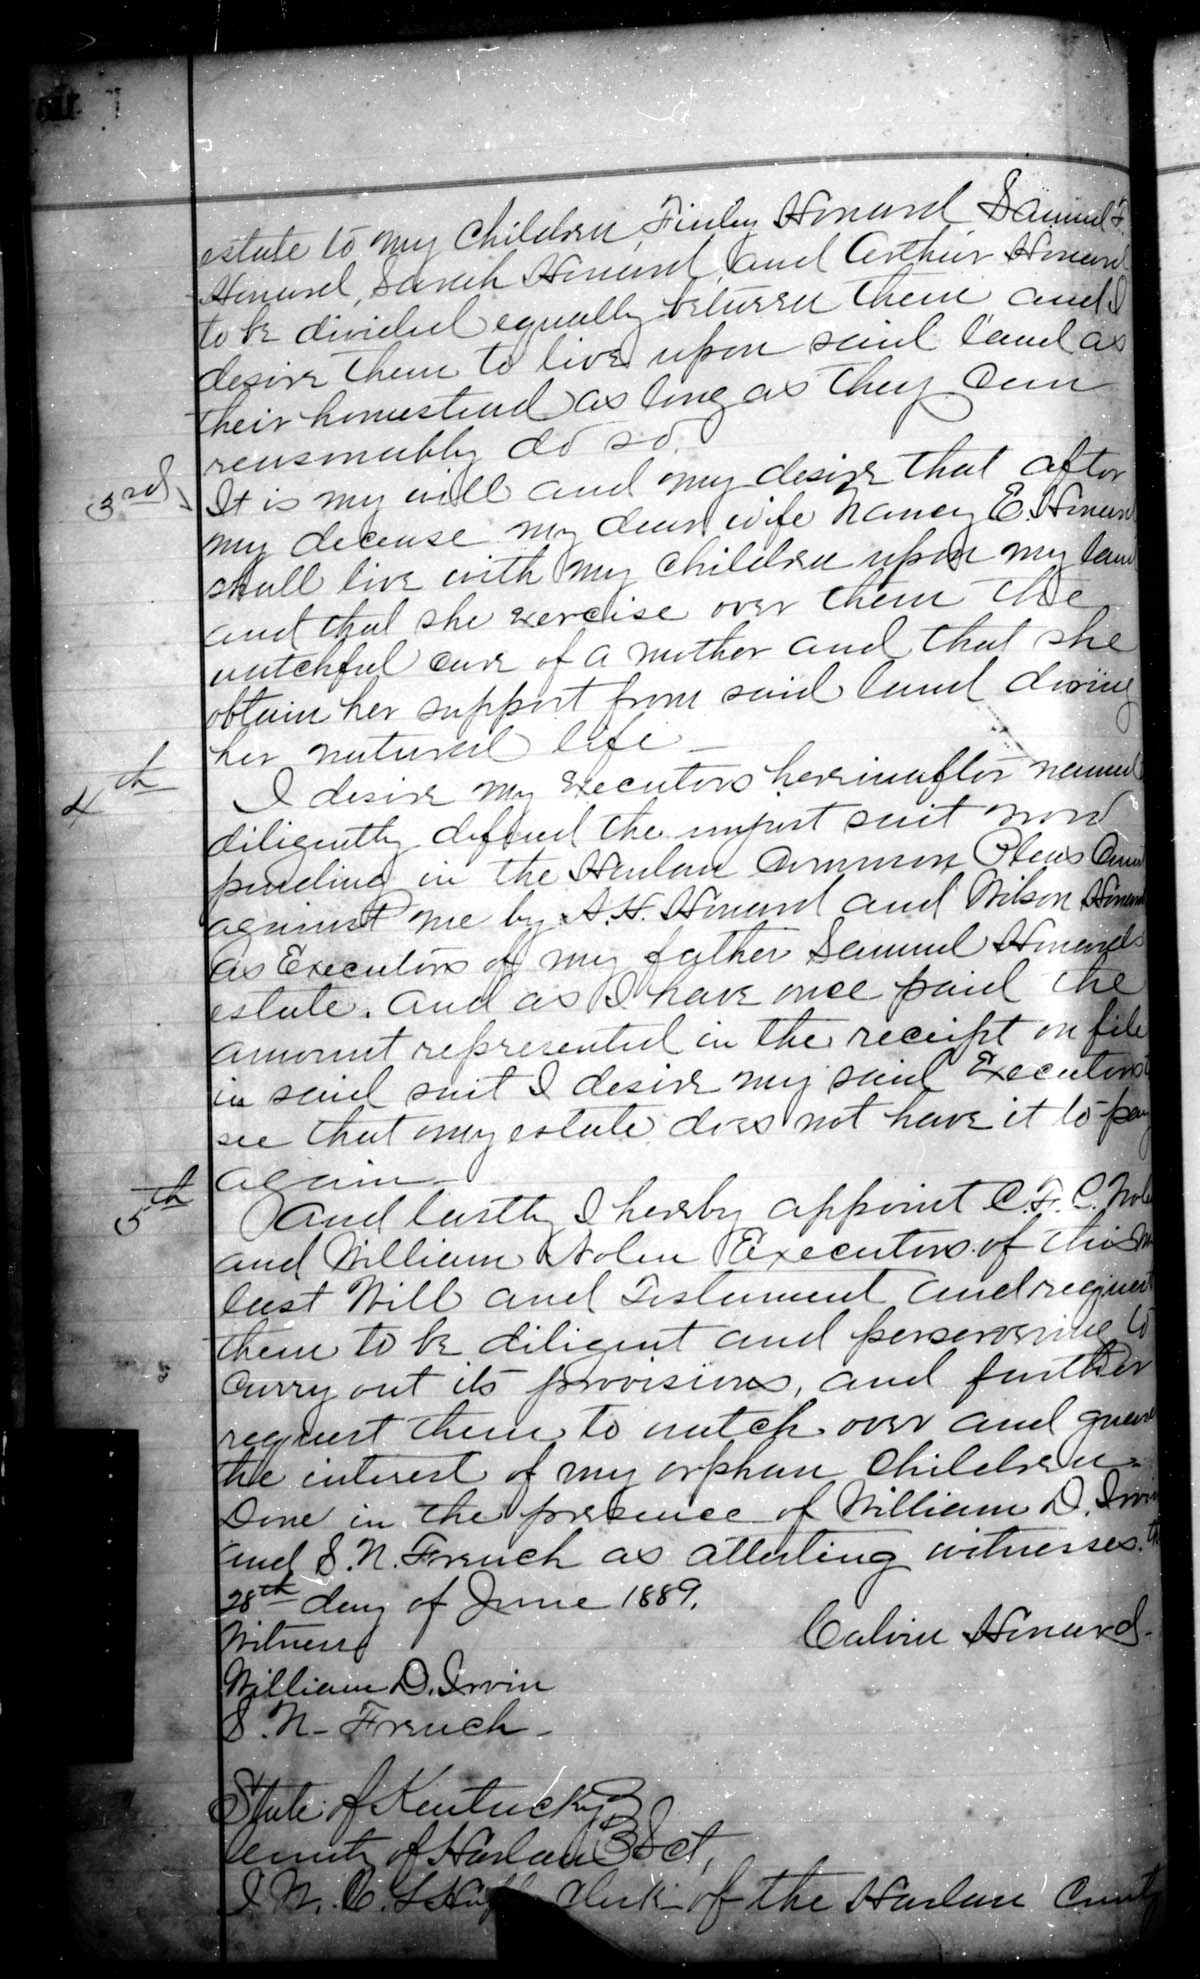 estate to my children, Finley Howard Samuel F.
Howard, Sarah Howard, and Arthur Howard
to be divided equally between them and I
desire them to live upon said land as
their homestead as long as they can
reasonably do so.
3rd, It is my will and my desire that after
my decease my dear wife Nancy E. Howard
shall live with my children upon my land
and that she exercise over them the
watchful care of a mother and that she
obtain her support from said land during
her natural life –
4th I desire my Executors hereinafter named
diligently defend the unjust suit now
pending in the Harlan Common Pleas Court
against me by A. H. Howard and Wilson Howard
as Executors of my father Samuel Howards
estate. and as I have once paid the
amount represented in the receipt on file
in said suit I desire my said Executors
see that my estate does not have it to pay
again –
5th And lastly I hereby appoint C. F. C.
and William Nolen Executors of this my
last Will and Testament and request
them to be diligent and perservering to
carry out its provisions, and further
request them to watch over and guard
the interest of my orphan children.
Done in the presence of William D. Irvin
and S. N. French as attesting witnesses. the
28th day of June 1889.
Calvin Howard.
Witness
William D. Irvin
S. N. French –
State of Kentucky
County of Harlan Sct,
I Clerk of the Harlan County